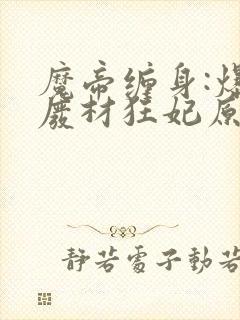 魔帝缠身:爆
废材狂妃原
静若处子動若